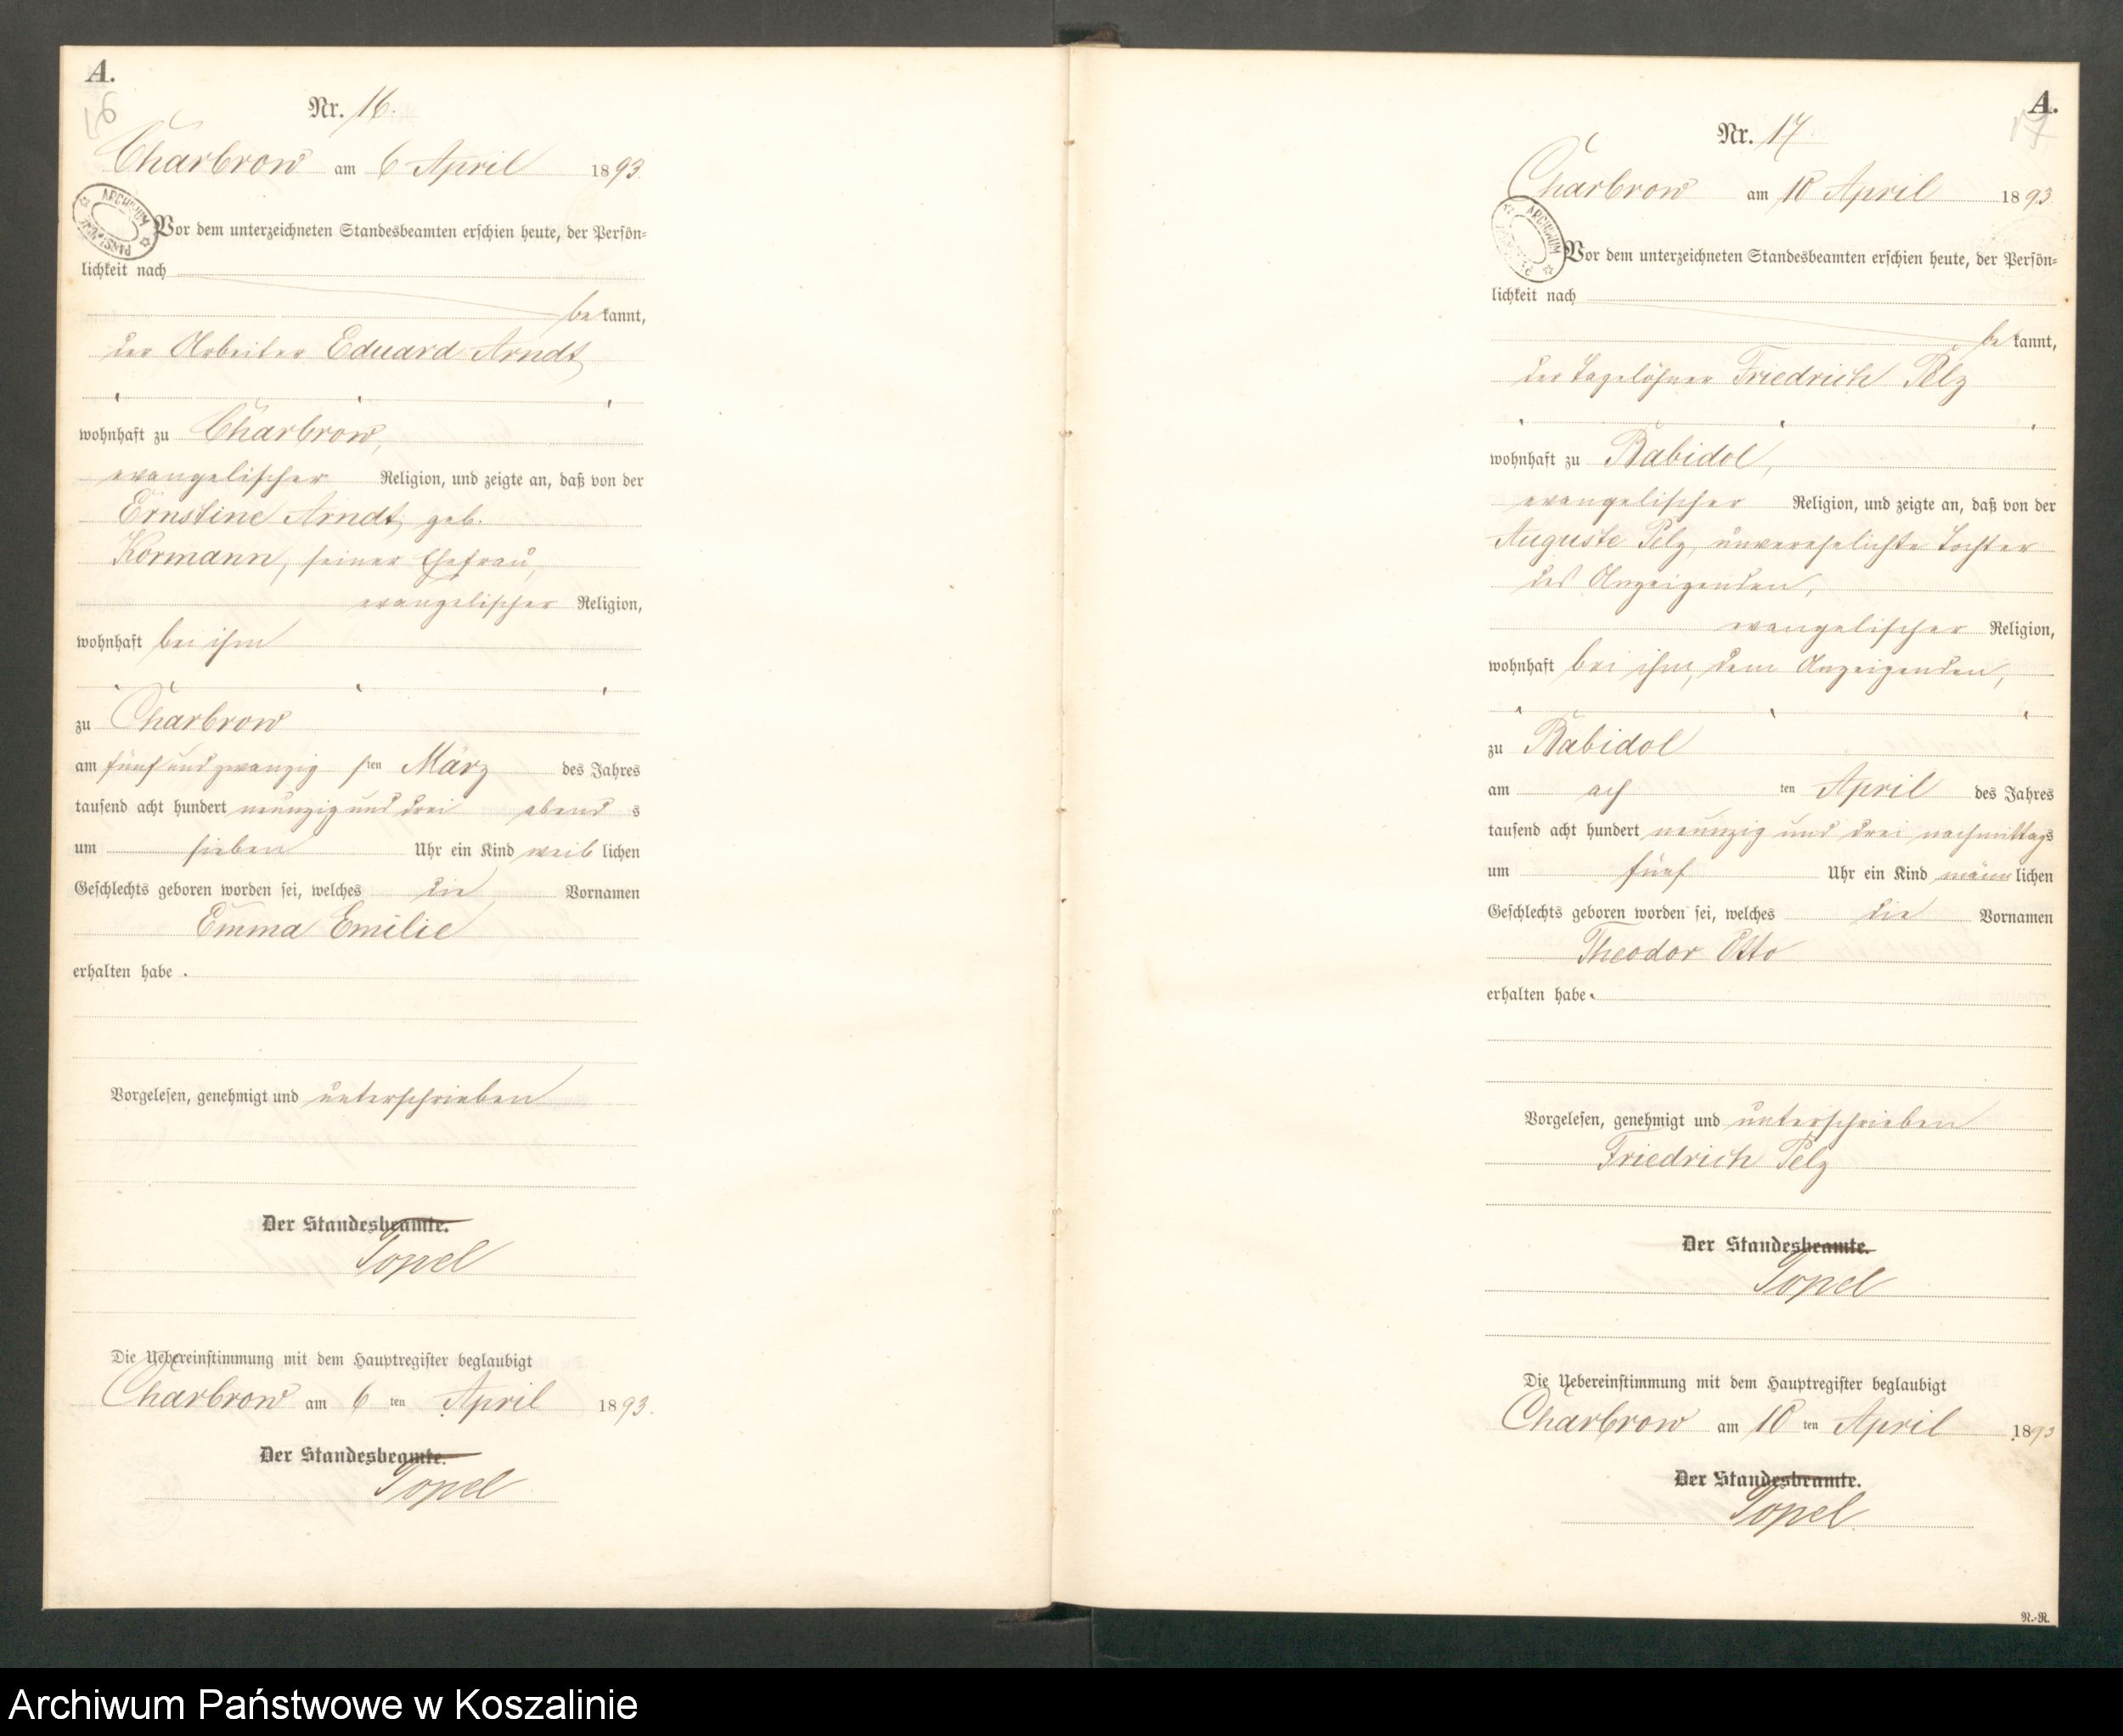 A.
16
Nr. 16.
Charbrow am 6 April 1893.
ARCHIWUM PAŃSTWOWE
Vor dem unterzeichneten Standesbeamten erschien heute, der Persön-
lichkeit nach
bekannt,
der Arbeiter Eduard Arndt
wohnhaft zu Charbrow,
evangelischer Religion, und zeigte an, daß von der
Ernstine Arndt, geb.
Kormann, seiner Ehefrau,
evangelischer Religion,
wohnhaft bei ihm
zu Charbrow
am fünf und zwanzigsten März des Jahres
tausend acht hundert neunzig und drei abends
um sieben Uhr ein Kind weiblichen
Geschlechts geboren worden sei, welches die Vornamen
Emma Emilie
erhalten habe.
Vorgelesen, genehmigt und unterschrieben
Der Standesbeamte.
Topel
Die Uebereinstimmung mit dem Hauptregister beglaubigt
Charbrow am 6ten April 1893.
Der Standesbeamte.
Topel
A.
17
Nr. 17
Charbrow am 10 April 1893
ARCHIWUM
Vor dem unterzeichneten Standesbeamten erschien heute, der Persön-
lichkeit nach
bekannt,
der Tagelöhner Friedrich Pelz
wohnhaft zu Babidol,
evangelischer Religion, und zeigte an, daß von der
Auguste Pelz, unverehelichte Tochter
des Anzeigenden,
evangelischer Religion,
wohnhaft bei ihm, dem Anzeigenden,
zu Babidol
am achten April des Jahres
tausend acht hundert neunzig und drei nachmittags
um fünf Uhr ein Kind männlichen
Geschlechts geboren worden sei, welches die Vornamen
Theodor Otto
erhalten habe.
Vorgelesen, genehmigt und unterschrieben
Friedrich Pelz
Der Standesbeamte.
Topel
Die Uebereinstimmung mit dem Hauptregister beglaubigt
Charbrow am 10ten April 1893
Der Standesbeamte.
Topel
N.-R.
Archiwum Państwowe w Koszalinie